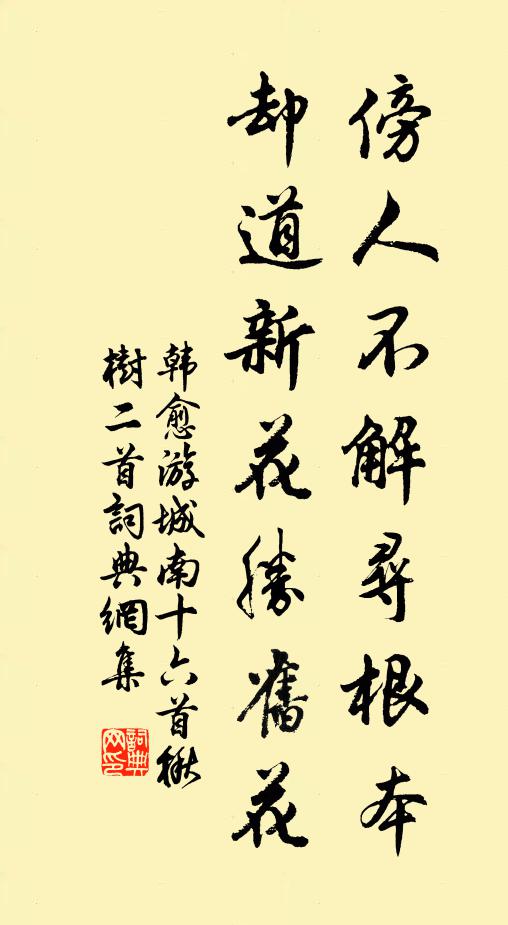 傍人不解尋根本
却道新花勝舊花
韩愈游城南十六首楸
樹二首詞典網集
詞典網印